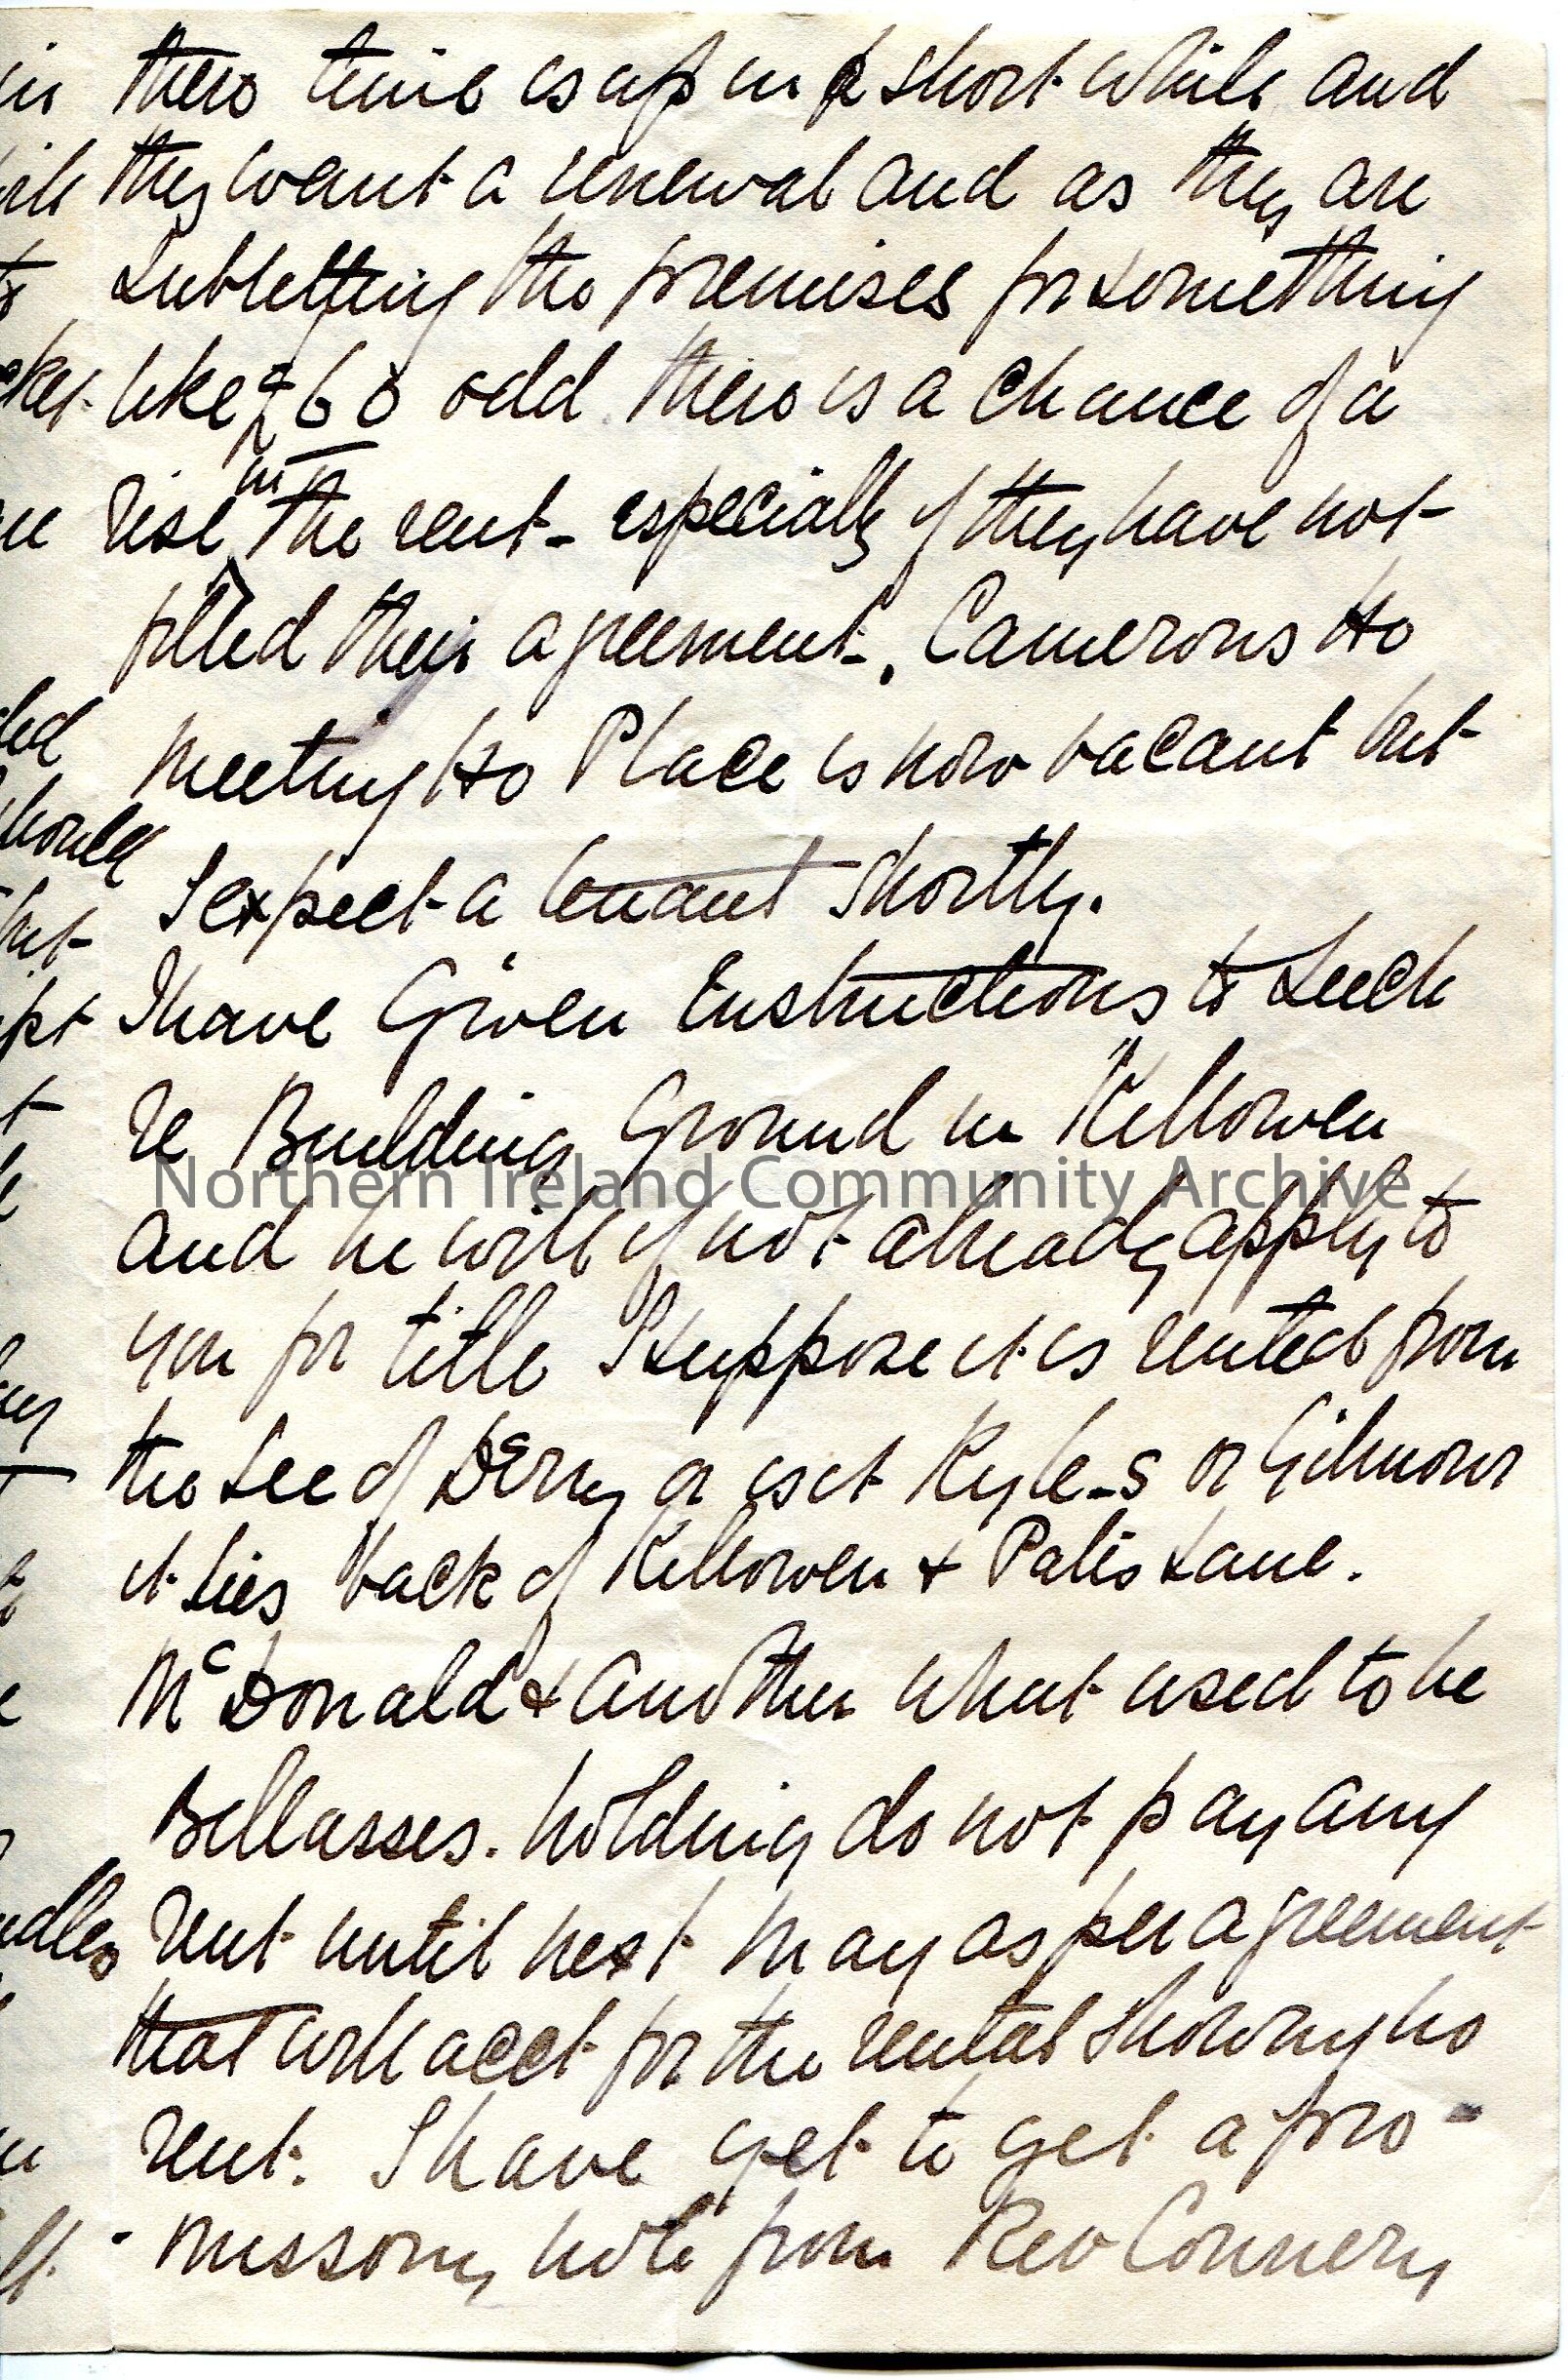 there time is up in a short while and
they want a renewal and as they are
Subletting the premises for something
like £60 odd there is a chance of a
rise in the rent - especially if they have not
filled their agreement. Camerons Ho
Meeting Ho Place is now vacant but
I expect a tenant shortly.
I have Given Instructions to Leech
re Building Ground in Killowen
Northern Ireland Community Archive
and he will if not already apply to
you for title I suppose it is rented from
the See of Derry or is it Kyle-s or Gilmour
it lies back of Killowen &
McDonald & another what used to be
Bellasses. holding do not pay any
rent until next May as per agreement
that will acct for the rental showing no
rent. I have yet to get a pro-
-missory note from Rev Connery